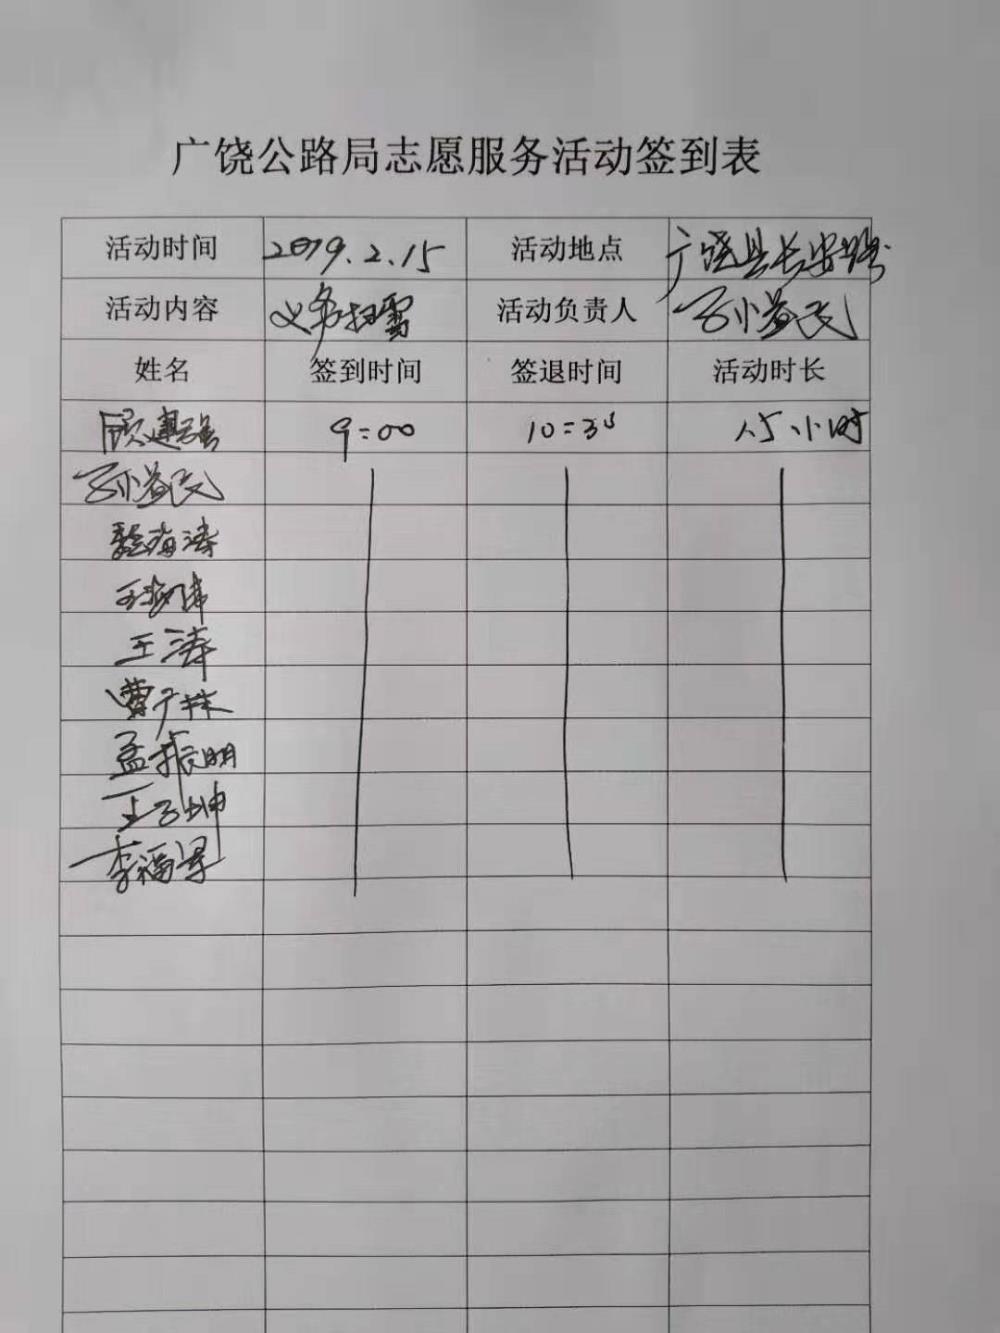 广饶公路局志愿服务活动签到表
活动时间 2019.2.15 活动地点 广饶县长安路
活动内容 义务扫雪 活动负责人 孙益民
姓名 签到时间 签退时间 活动时长
顾建强 9:00 10:30 1.5小时
孙益民
海涛
王海伟
王涛
曹广林
孟振明
王子坤
李福星